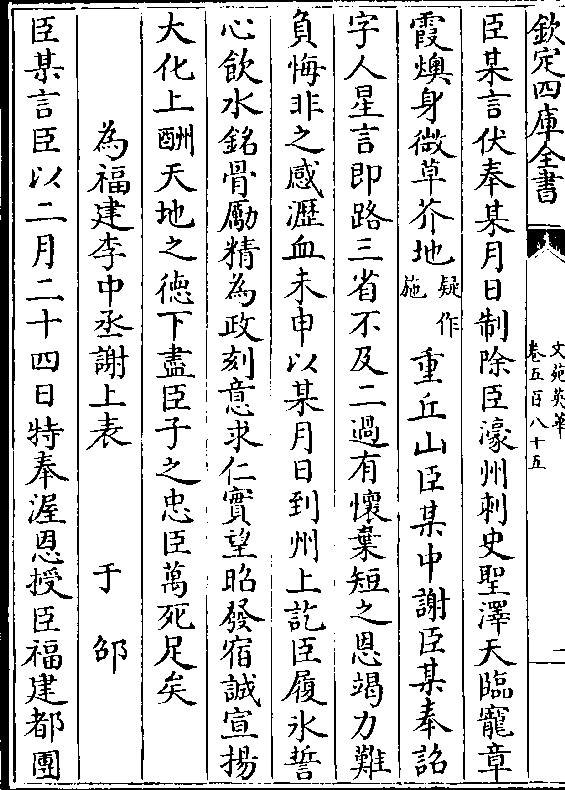 欽定四庫全書
文苑英華
卷五百八十五
二
臣某言伏奉某月日制除臣濠州刺史聖澤天臨寵章
霞燠身微草芥地疑作施重丘山臣某中謝臣某奉詔
字人星言即路三省不及二過有懷棄短之恩竭力難
負悔非之感瀝血未申以某月日到州上訖臣履氷誓
心飲水銘骨勵精為政刻意求仁實望昭發宿誠宣揚
大化上酬天地之德下盡臣子之忠臣萬死足矣
為福建李中丞謝上表 于邵
臣某言臣以二月二十四日特奉渥恩授臣福建都團